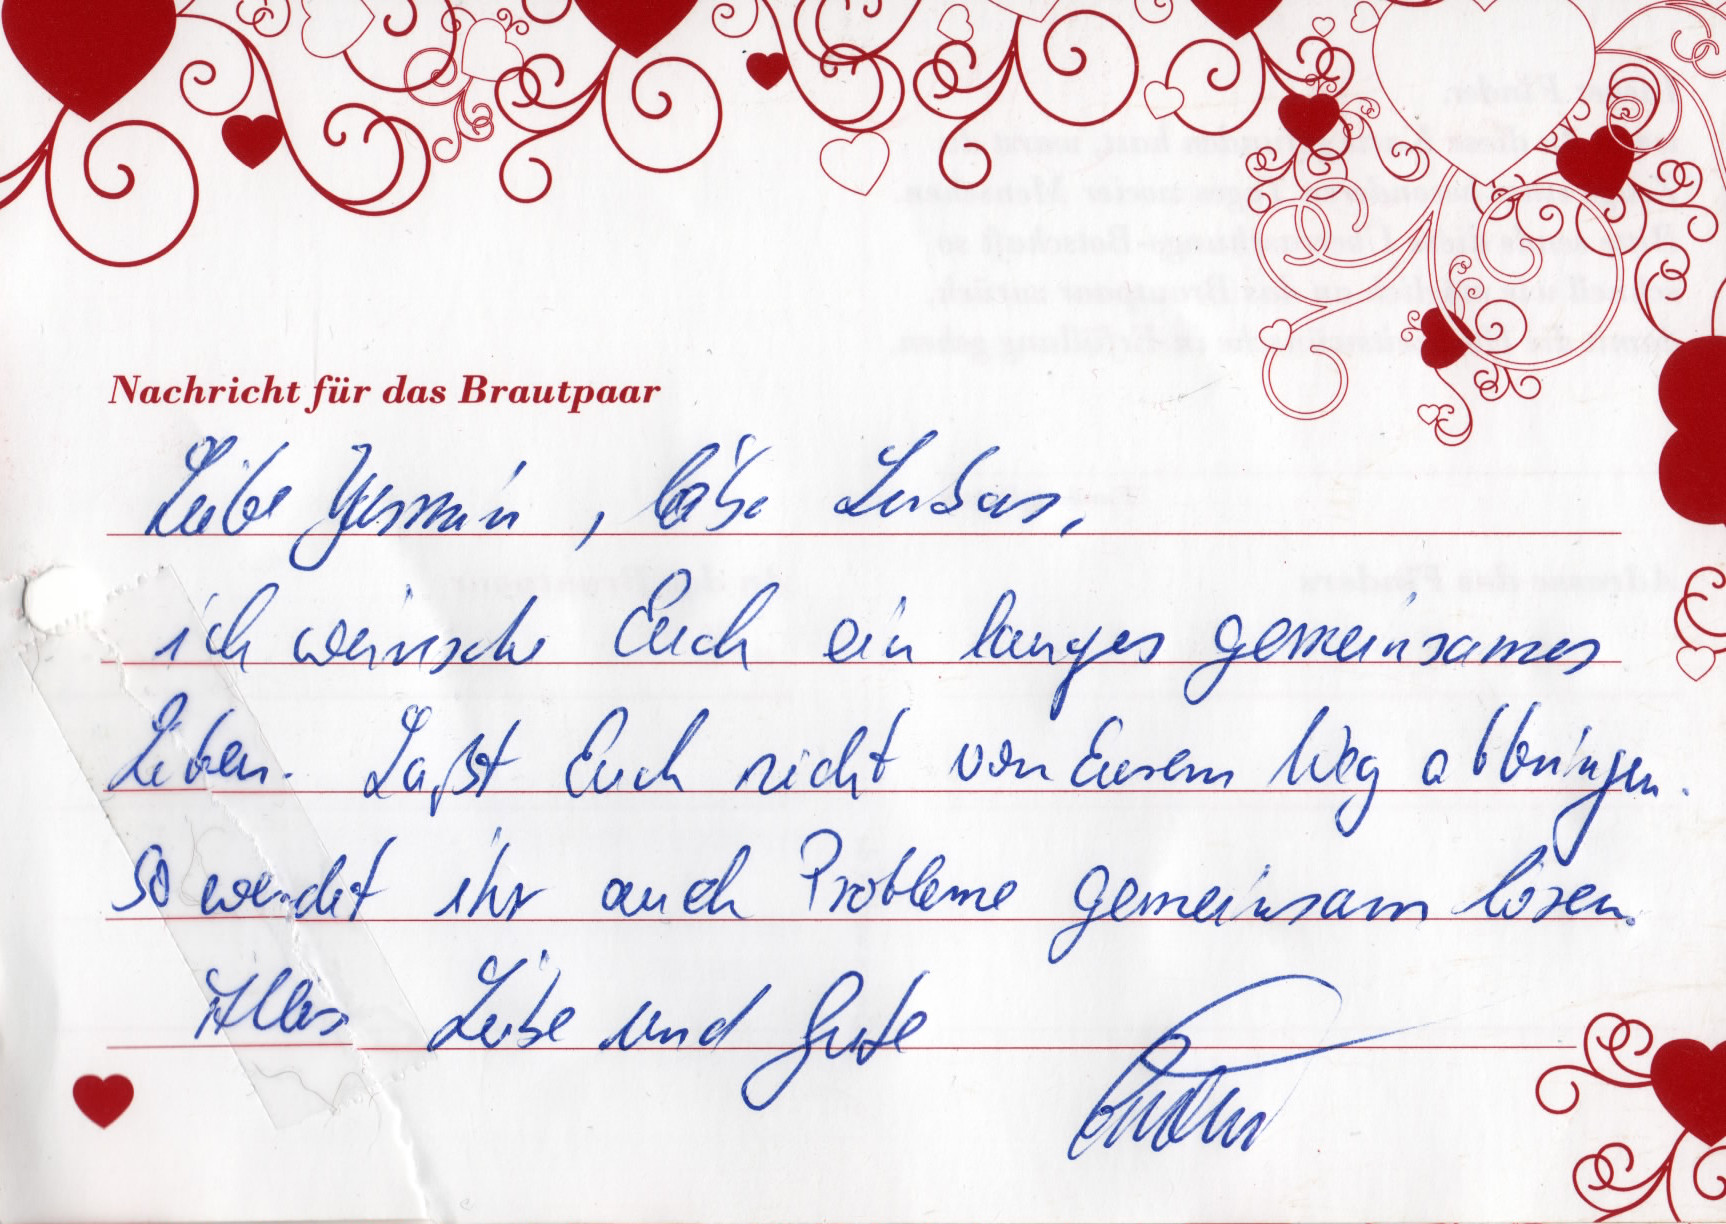 Nachricht für das Brautpaar
Liebe Yasmin, liebe Lukas,
ich wünsche Euch ein langes gemeinsames
Leben. Laßt Euch nicht von Eurem Weg abbringen.
So werdet ihr auch Probleme gemeinsam lösen.
Alles Liebe und Gute